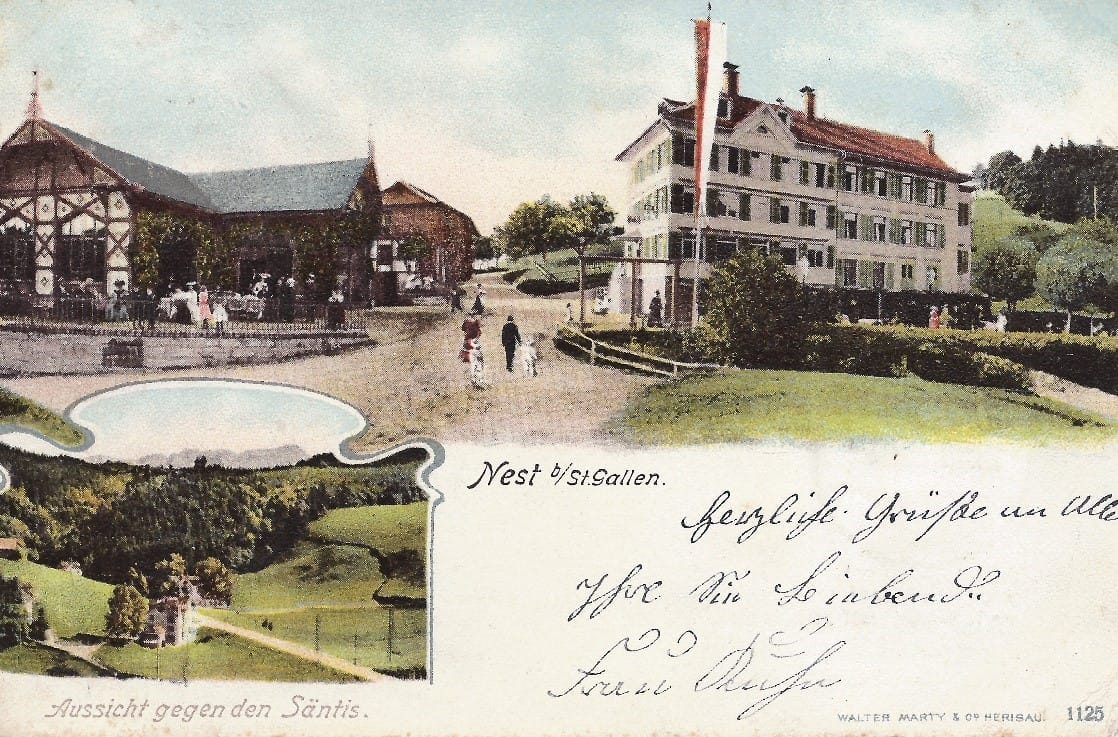 Nest b/St.Gallen.
Herzliche Grüße an Alle
Ihre Sie Liebende
Frau Kuhn
Aussicht gegen den Säntis.
WALTER MARTY & Cº HERISAU. 1125